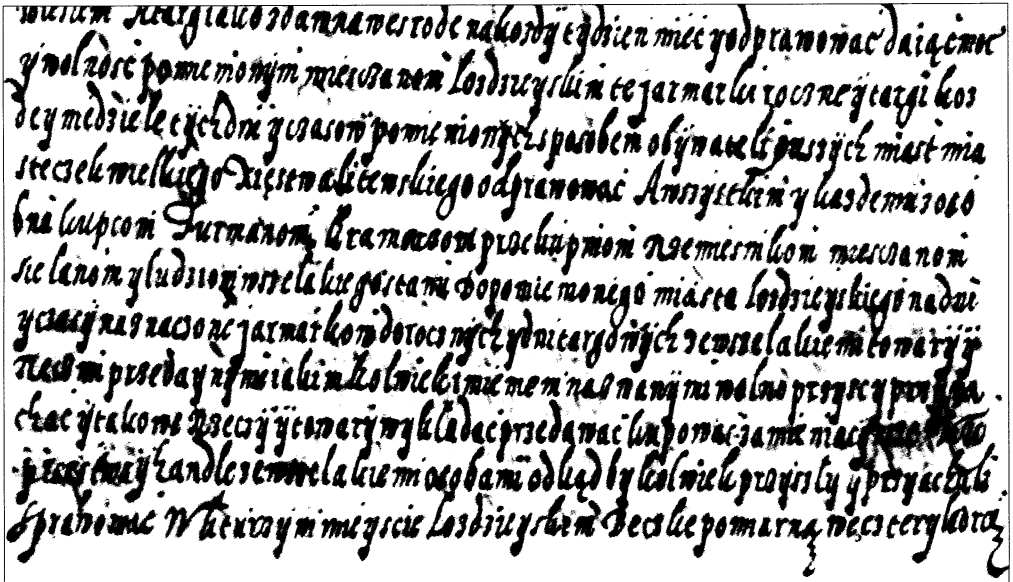 A targi also zdawna we srode na kozdy tydzien miec y odprawowac daiąc moc
y wolnosc pomienionym miesczanom Lozdzieyskim te jarmarki roczne y targi koz
dey niedziele tych dni y czasow pomienionych sposobem obywateli inszych miast mia
steczek wielkiego Xięstwa litewskiego odprawowac A wszystkim y kazdemu z oso
bna kupcom Furmanom Kramarzom przekupniom Rzemieslikom miesczanom
sielanom y ludziom wszelakiego stanu do pomienionego miasta Lozdzieyskiego na dni
y czasy naznaczone jarmarkow dorocznych y dni targowych z wszelakiemi towary y
Rzeczmi przedaynymi iakimkolwiek imieniem nazwanymi wolno przyscy przyia
chac y takowe Rzeczy y towary wykladac przedawac kupowac zamieniac
y handle z wszelakiemi osobami odkąd bykolwiek przyszly y przyachali
sprawowac W kturzym miescie Lozdzieyskim Becske pomiarną we cztery